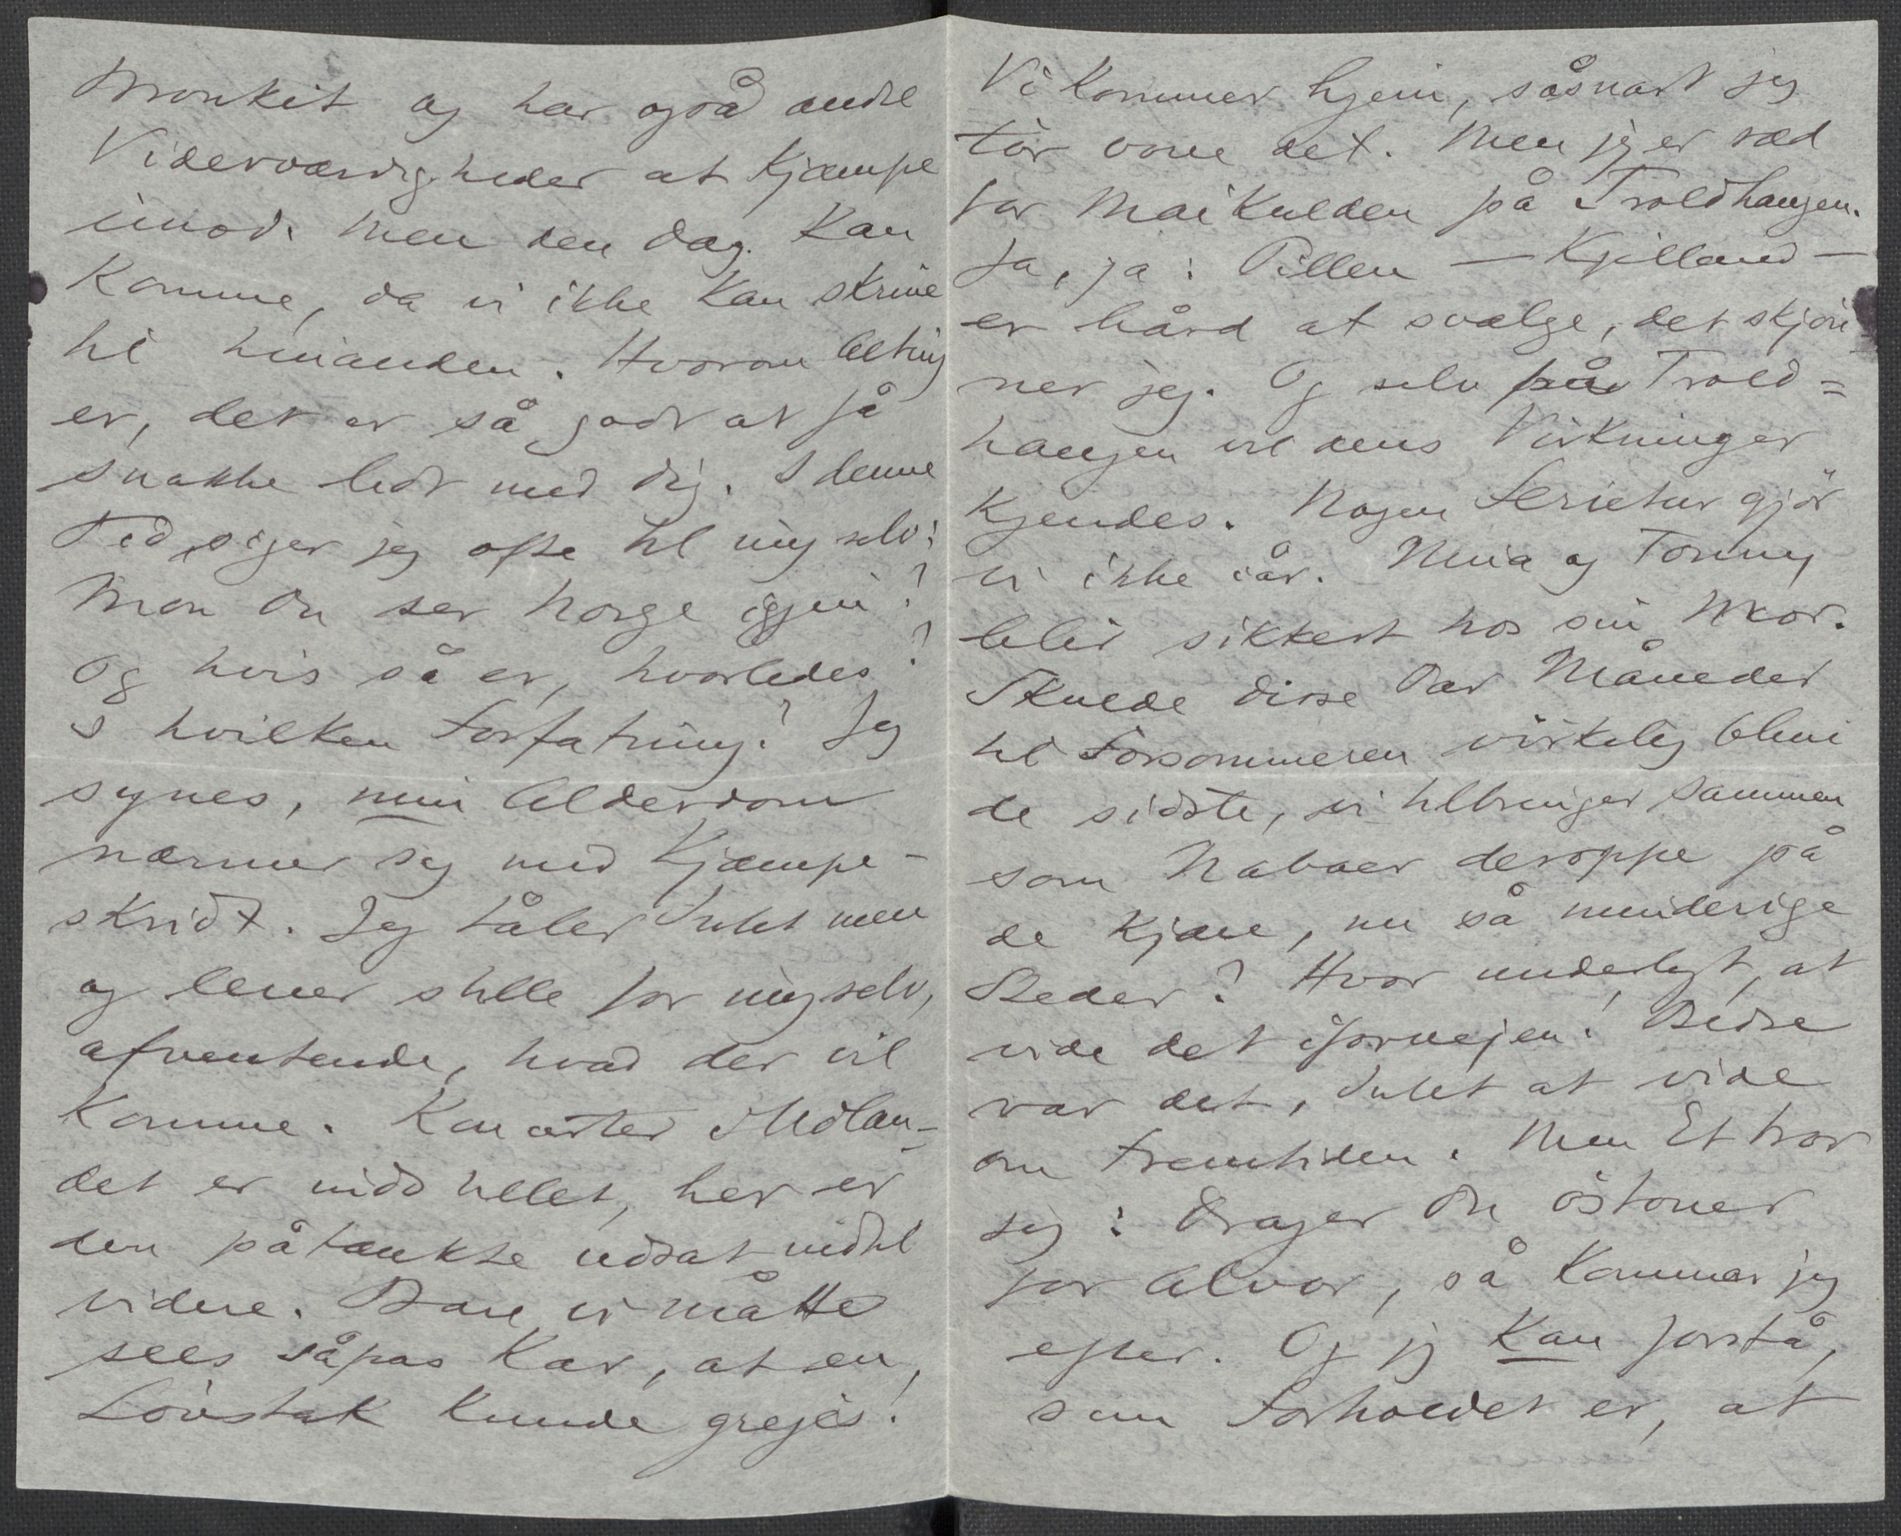 Bronkit og har også andre
Viderværdigheder at kjæmpe
imod. Men den Dag kan
komme, da vi ikke kan skrive
til hinanden. Hvorom Alting
er, det er så godt at få
snakke lidt med Dig. I denne
Tid siger jeg ofte til mig selv:
Mon Du ser Norge igjen?
Og hvis så er, hvorledes?
I hvilken Forfatning? Jeg
synes, min Alderdom
nærmer sig med Kjæmpe-
skridt. Jeg tåler Intet mer
og lever stille for mig selv,
afventende, hvad der vil
komme. Koncerter i Udlan-
det er indstillet, her er
den påtænkte udsat indtil
videre. Bare vi måtte
sees såpas Kar, at en
Lövstak kunde grejes!
Vi kommer hjem, såsnart jeg
tör vove det. Men jeg er ræd
for Maikulden på Troldhaugen.
Ja, ja: Pillen — Kjelland —
er hård at svælge, det skjön
ner jeg. Og selv på Trold=
haugen vil dens Virkninger
kjendes. Nogen Ferietur gjör
vi ikke iår. Mia og Tonny
blir sikkert hos sin Mor.
Skulde disse Par Måneder
til Forsommeren virkelig blive
de sidste, vi tilbringer sammen
som Naboer deroppe på
de kjære, nu så minderige
Steder? Hvor underligt, at
vide det iforvejen! Bedre
var det, Intet at vide
om Fremtiden. Men Et tror
jeg: Drager Du östover
for Alvor, så kommer jeg
efter. Og jeg kan forstå,
som Forholdet er, at